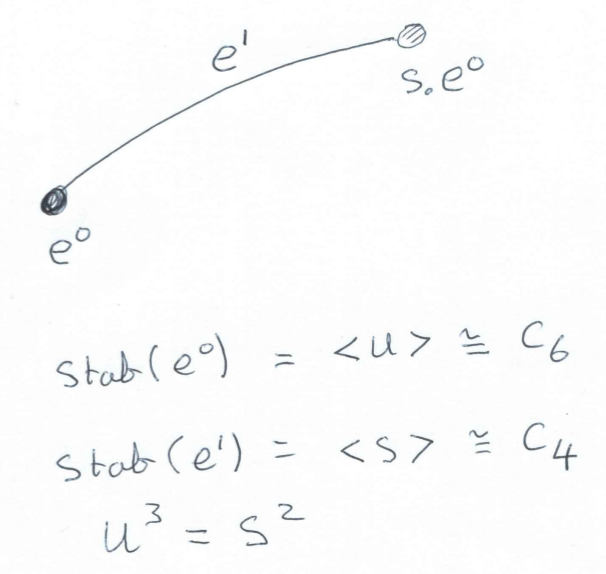 e¹
s.e⁰
e⁰
Stab(e⁰) = <u> ≅ C₆
Stab(e¹) = <s> ≅ C₄
u³ = s²